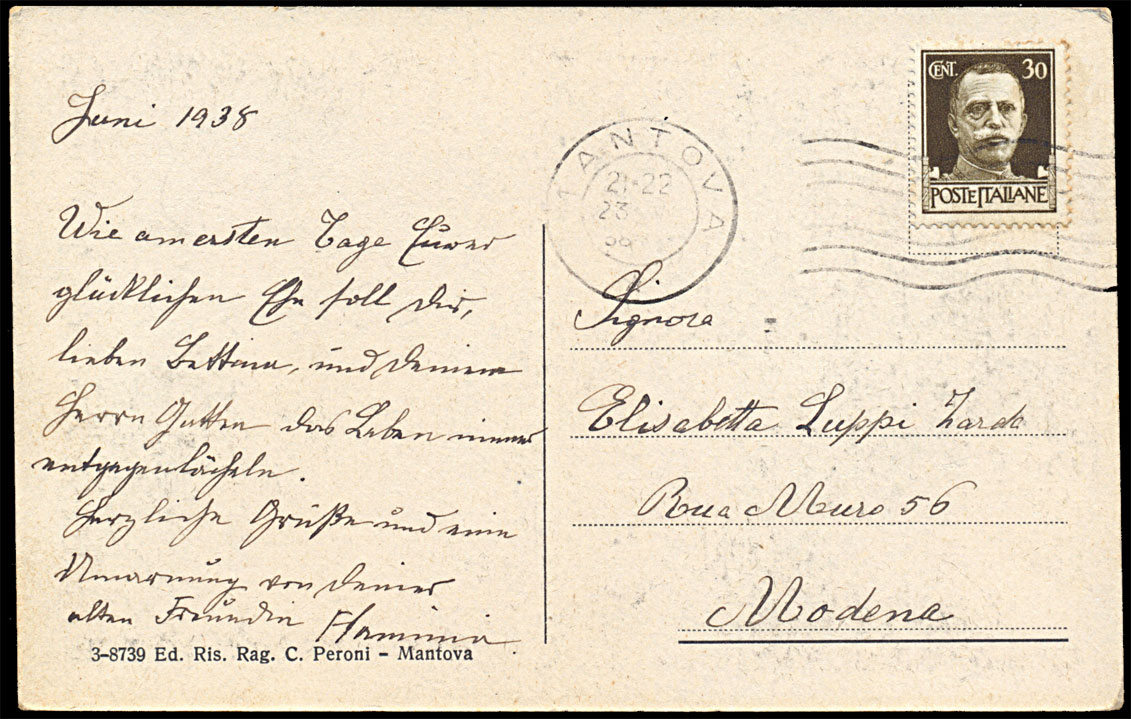 Juni 1938
Wie am ersten Tage Eurer
glücklichen Ehe soll Dir,
lieben Bettina, und Deinem
Herrn Gatten das Leben immer
entgegenlächeln.
Herzliche Grüße und eine
Umarmung von Deiner
alten Freundin Flaminia
3-8739 Ed. Ris. Rag. C. Peroni - Mantova
MANTOVA
21-22
23
CENT. 30
POSTE ITALIANE
Signora
Elisabetta Luppi Zarda
Rua Muro 56
Modena